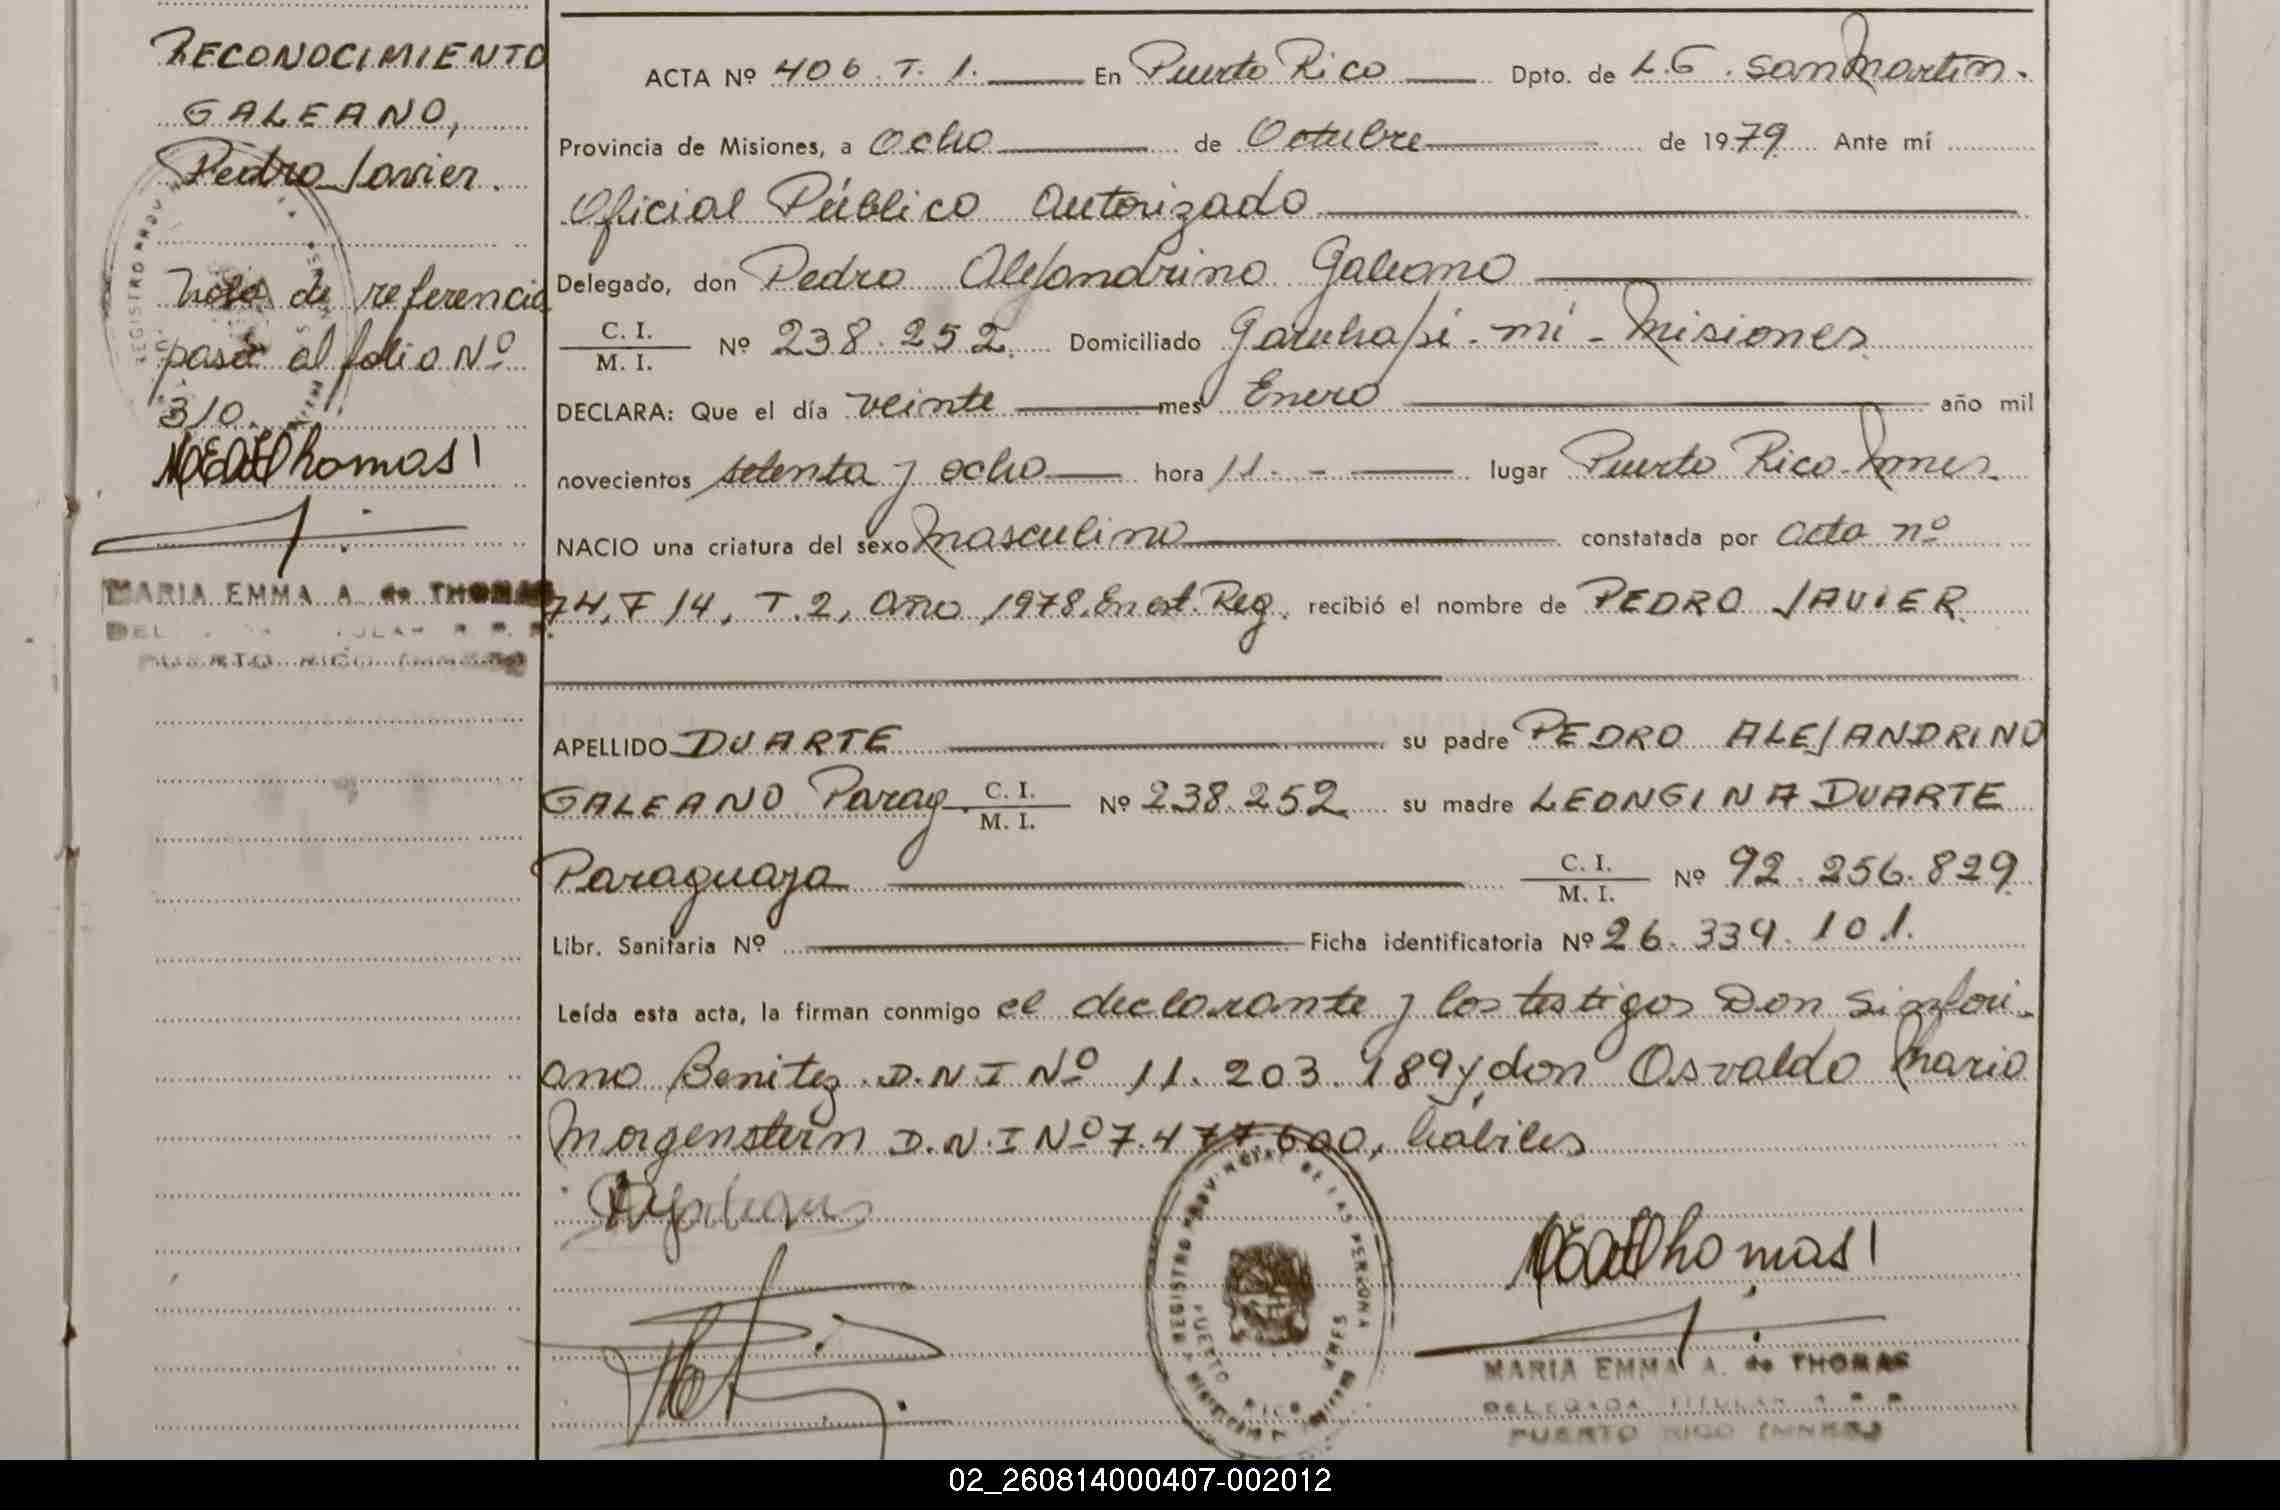 RECONOCIMIENTO
GALEANO,
Pedro Javier.
Nota de referencia
pasa al folio Nº
310.
MEAdeThomas
MARIA EMMA A. de THOMAS
PUERTO RICO (MNES)
ACTA Nº 406. T. 1. En Puerto Rico Dpto. de L.G. San Martín.
Provincia de Misiones, a Ocho de Octubre de 1979 Ante mí
Oficial Público Autorizado
Delegado, don Pedro Alejandrino Galeano
C. I. / M. I. Nº 238.252. Domiciliado Garuhapé-mí-Misiones
DECLARA: Que el día veinte mes Enero año mil
novecientos setenta y ocho hora 11.- lugar Puerto Rico-Mnes.
NACIO una criatura del sexo Masculino constatada por acta nº
74, F 14, T. 2, Año 1978. En est. Reg. recibió el nombre de PEDRO JAVIER.
APELLIDO DUARTE su padre PEDRO ALEJANDRINO
GALEANO Parag. C. I. / M. I. Nº 238.252 su madre LEONGINA DUARTE
Paraguaya C. I. / M. I. Nº 92.256.829
Libr. Sanitaria Nº Ficha identificatoria Nº 26.339.101.
Leída esta acta, la firman conmigo el declarante y los testigos Don Sinfori-
ano Benitez D.N.I Nº 11.203.189 y don Osvaldo Mario
Morgenstern D.N.I Nº 7.477.600, hábiles
REGISTRO PROVINCIAL DE LAS PERSONAS
PUERTO RICO MNES
MEAdeThomas
MARIA EMMA A. de THOMAS
DELEGADA TITULAR R. P. P.
PUERTO RICO (MNES)
02_260814000407-002012